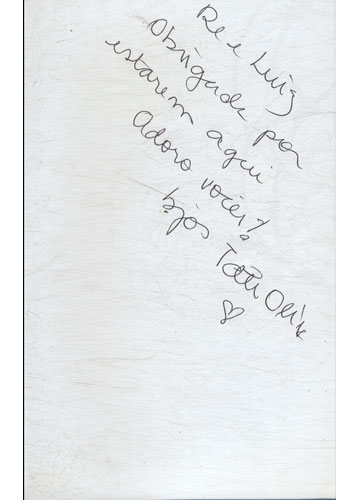 Re e Luiz
Obrigada por
estarem aqui
Adoro vocês!
bjos Tati Oliv
♡